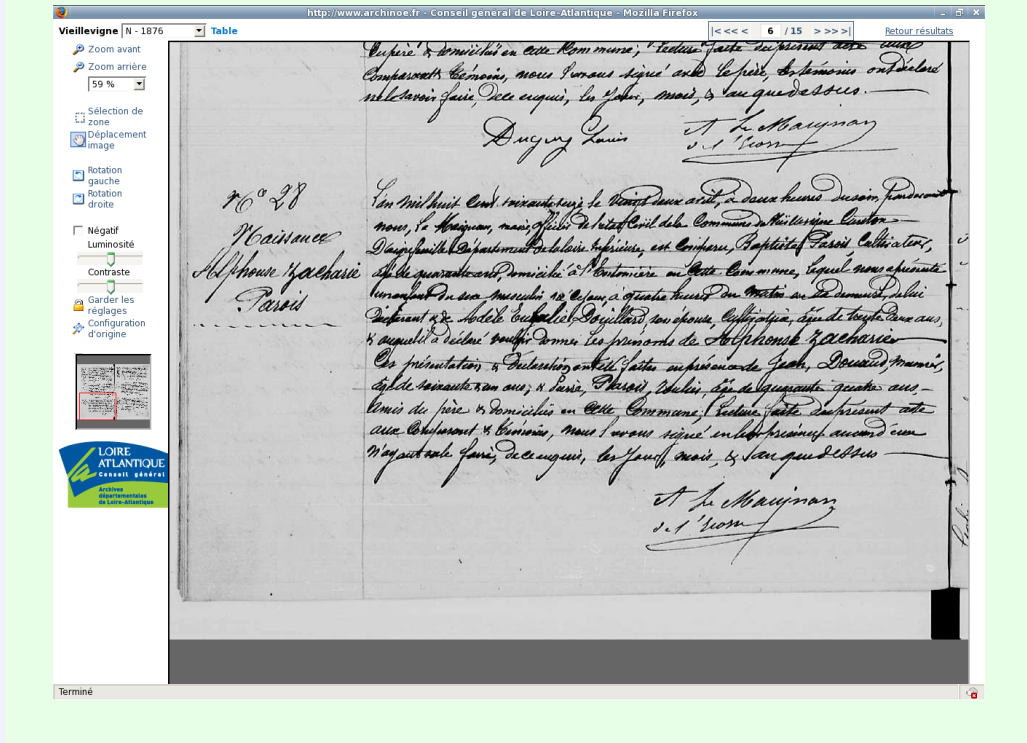 http://www.archinoe.fr - Conseil général de Loire-Atlantique - Mozilla Firefox
Vieillevigne N - 1876 Table
|<< < < 6 / 15 > >> >|
Retour résultats
Zoom avant
Zoom arrière
59 %
Sélection de
zone
Déplacement
image
Rotation
gauche
Rotation
droite
Négatif
Luminosité
Contraste
Garder les
réglages
Configuration
d'origine
LOIRE
ATLANTIQUE
Conseil général
Archives
départementales
de Loire-Atlantique
domiciliés en cette Commune; Lecture faite du présent acte aux
Comparant & témoins, nous l'avons signé avec le père, les témoins ont déclaré
ne le savoir faire de ce enquis, les jour, mois, & an que dessus.
Duguy Louis
A Le Maignan
de l'Ecorse
N° 28
Naissance
Alphonse Zacharie
Parois
L'an mil huit cent soixante seize le vingt deux avril, à deux heures du soir, pardevant
nous, Le Maignan, maire, officier de l'état Civil de la Commune de Vieillevigne Canton
D'aigrefeuille Département de la Loire Inférieure, est comparu, Baptiste Parois Cultivateur,
âgé de quarante ans, domicilié à en cette Commune, lequel nous a présenté
un enfant du sexe masculin né ce jour, à quatre heures du matin en sa demeure, de lui
déclarant & de Adèle Eulalie Douillard, son épouse, Cultivatrice, âgée de trente deux ans,
& auquel il a déclaré vouloir donner les prénoms de Alphonse Zacharie
Ces présentation & déclaration ont été faites en présence de Jean, Douaud
âgé de soixante & un ans; & Parois, âgé de quarante quatre ans
Amis du père & domiciliés en cette Commune; Lecture faite du présent acte
aux Comparant & témoins, nous l'avons signé en leur présence aucun d'eux
n'ayant su le faire, de ce enquis, les jour, mois, & an que dessus
A Le Maignan
de l'Ecorse
Terminé